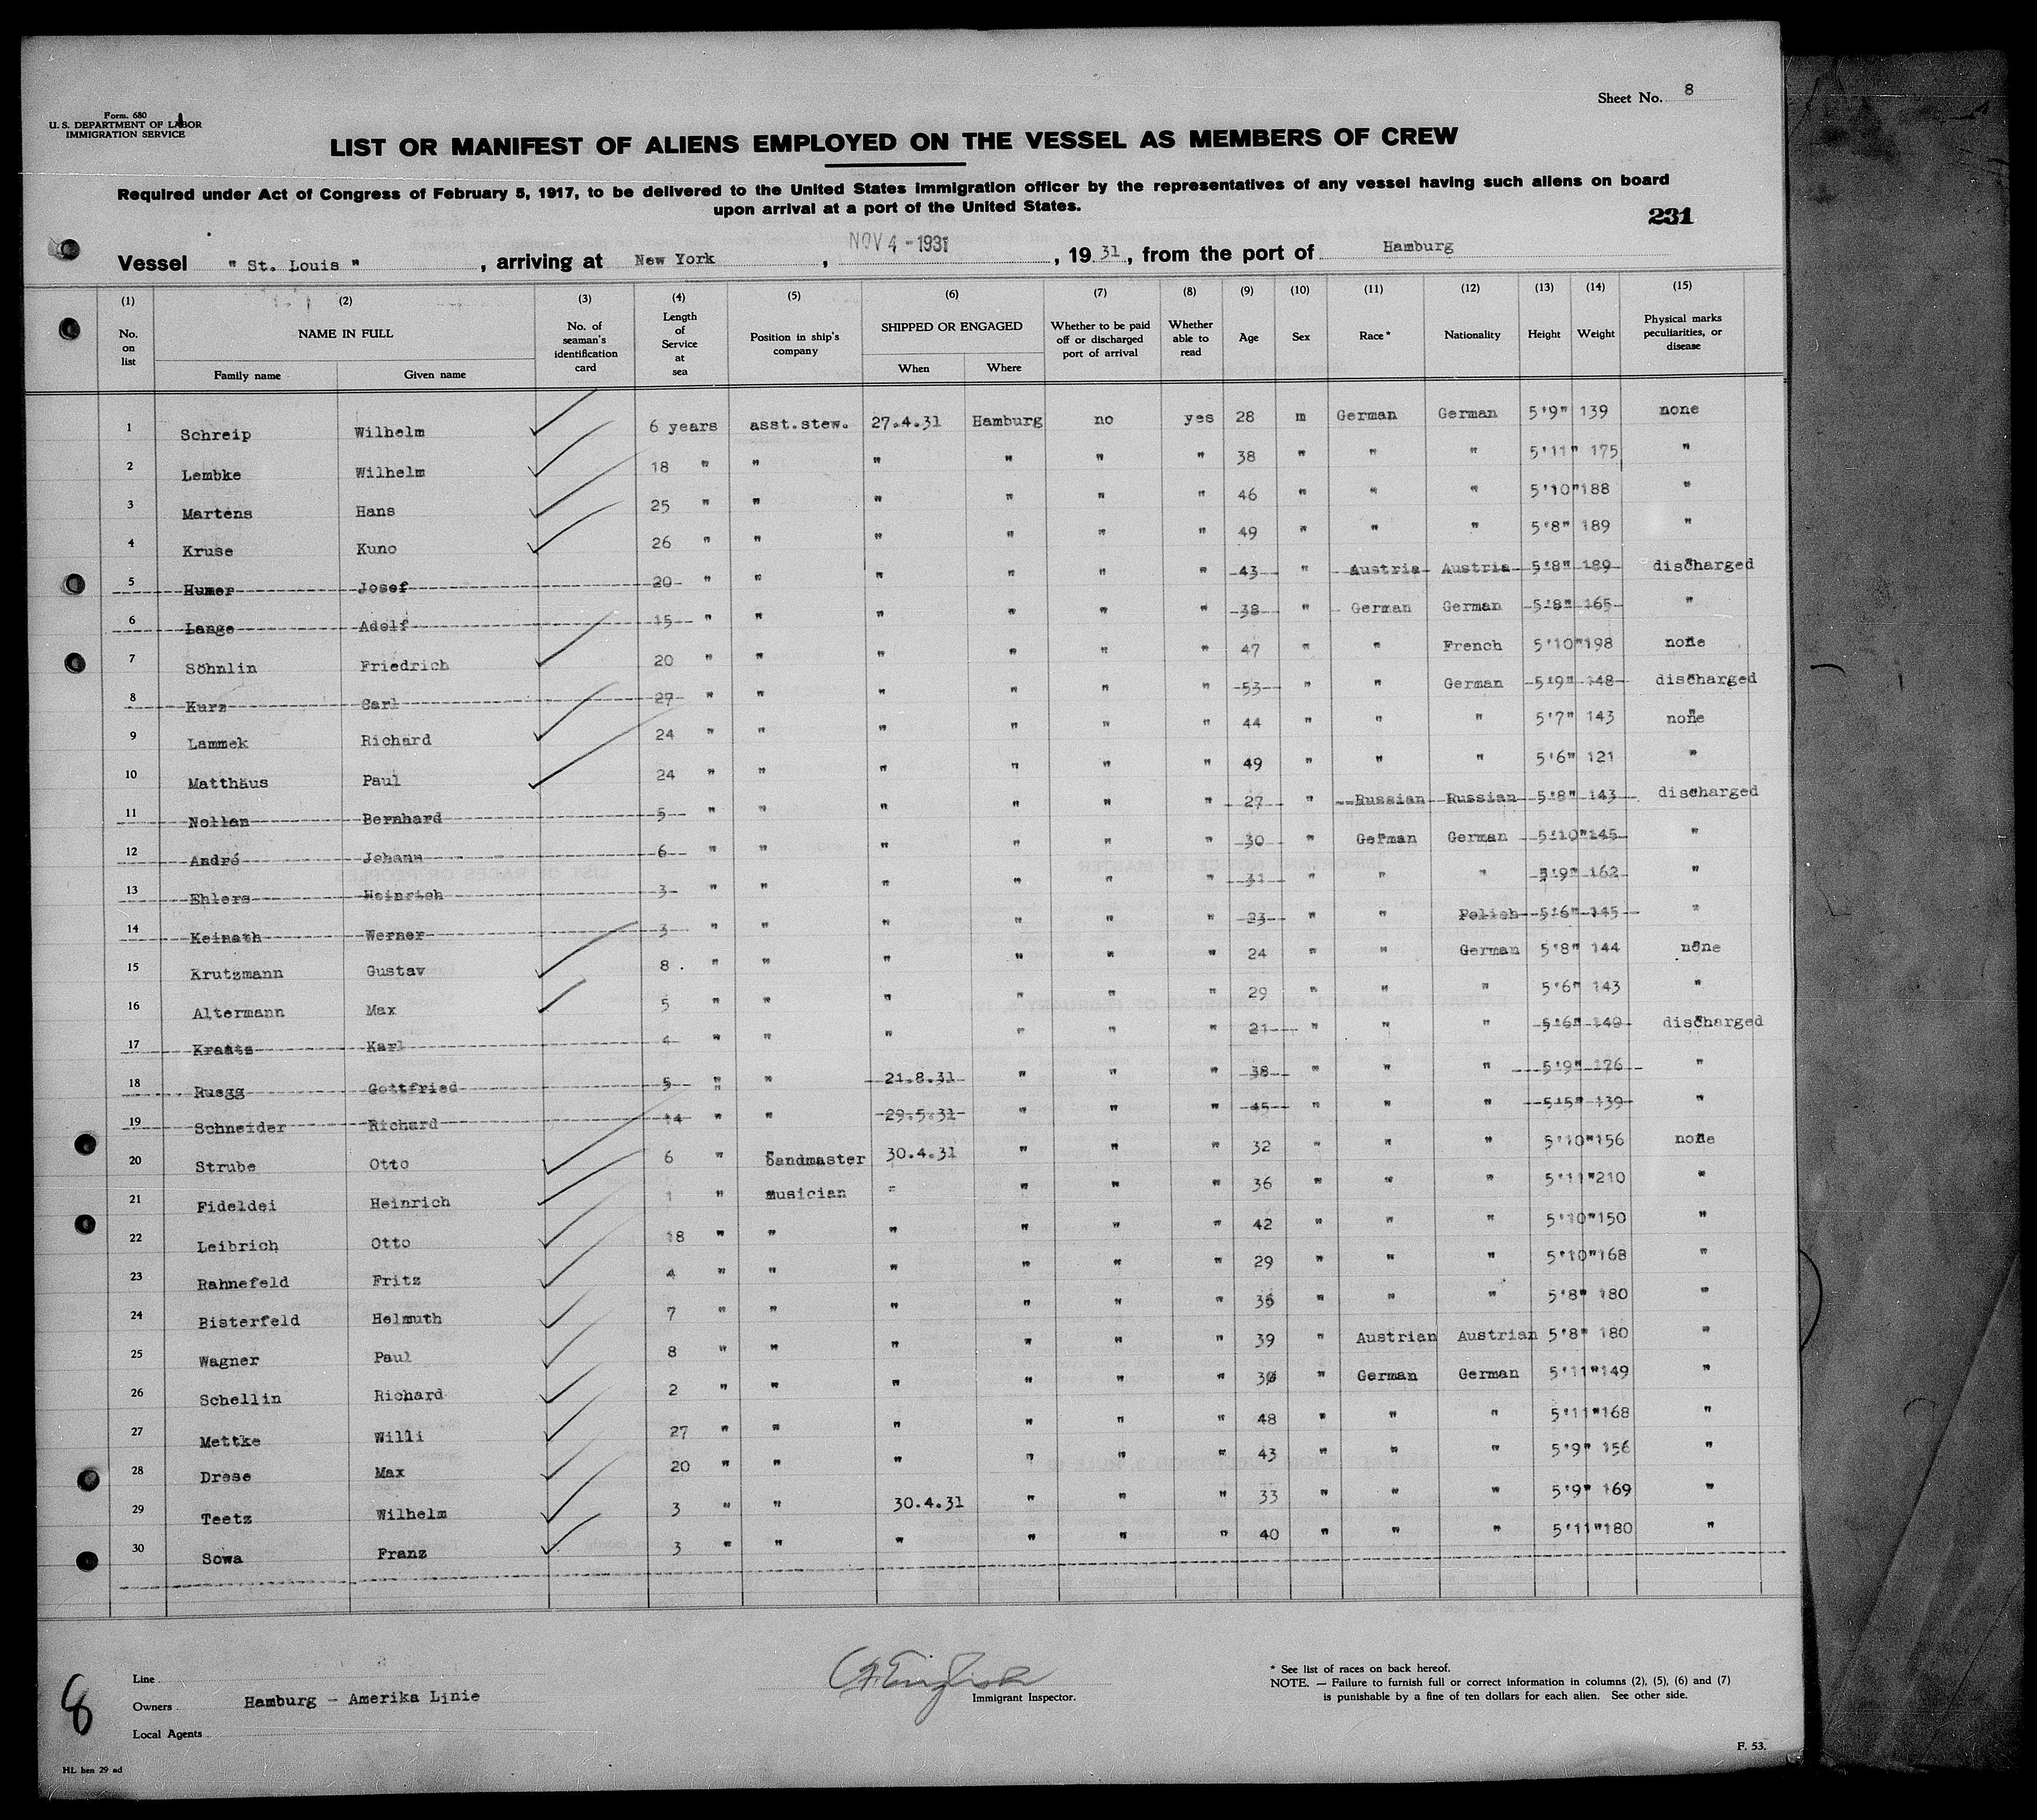 Sheet No. 8
Form. 680
U. S. DEPARTMENT OF LABOR
IMMIGRATION SERVICE
LIST OR MANIFEST OF ALIENS EMPLOYED ON THE VESSEL AS MEMBERS OF CREW
Required under Act of Congress of February 5, 1917, to be delivered to the United States immigration officer by the representatives of any vessel having such aliens on board
upon arrival at a port of the United States.
231
Vessel " St. Louis " , arriving at New York , NOV 4 - 1931 , 19 31, from the port of Hamburg
(1) (2) (3) (4) (5) (6) (7) (8) (9) (10) (11) (12) (13) (14) (15)
No. on list NAME IN FULL Family name Given name No. of seaman's identification card Length of Service at sea Position in ship's company SHIPPED OR ENGAGED When Where Whether to be paid off or discharged port of arrival Whether able to read Age Sex Race* Nationality Height Weight Physical marks peculiarities, or disease
1 Schreip Wilhelm 6 years asst.stew. 27.4.31 Hamburg no yes 28 m German German 5'9" 139 none
2 Lembke Wilhelm 18 " " " " " " 38 " " " 5'11" 175 "
3 Martens Hans 25 " " " " " " 46 " " " 5'10" 188 "
4 Kruse Kuno 26 " " " " " " 49 " " " 5'8" 189 "
5 Humer Josef 20 " " " " " " 43 " Austria Austria 5'8" 189 discharged
6 Lange Adolf 15 " " " " " " 38 " German German 5'8" 165 "
7 Söhnlin Friedrich 20 " " " " " " 47 " " French 5'10" 198 none
8 Kurz Carl 27 " " " " " " 53 " " German 5'9" 148 discharged
9 Lammek Richard 24 " " " " " " 44 " " " 5'7" 143 none
10 Matthäus Paul 24 " " " " " " 49 " " " 5'6" 121 "
11 Nollan Bernhard 5 " " " " " " 27 " Russian Russian 5'8" 143 discharged
12 André Johann 6 " " " " " " 30 " German German 5'10" 145 "
13 Ehlers Heinrich 3 " " " " " " 31 " " " 5'9" 162 "
14 Keinath Werner 3 " " " " " " 23 " " Polish 5'6" 145 "
15 Krutzmann Gustav 8 " " " " " " 24 " " German 5'8" 144 none
16 Altermann Max 5 " " " " " " 29 " " " 5'6" 143 "
17 Kraats Karl 4 " " " " " " 21 " " " 5'6" 140 discharged
18 Ruegg Gottfried 5 " " 21.8.31 " " " 38 " " " 5'9" 176 "
19 Schneider Richard 14 " " 29.5.31 " " " 45 " " " 5'5" 139 "
20 Strube Otto 6 " bandmaster 30.4.31 " " " 32 " " " 5'10" 156 none
21 Fideldei Heinrich 1 " musician " " " " 36 " " " 5'11" 210 "
22 Leibrich Otto 18 " " " " " " 42 " " " 5'10" 150 "
23 Rahnefeld Fritz 4 " " " " " " 29 " " " 5'10" 168 "
24 Bisterfeld Helmuth 7 " " " " " " " " " 5'8" 180 "
25 Wagner Paul 8 " " " " " " 39 " Austrian Austrian 5'8" 180 "
26 Schellin Richard 2 " " " " " " " German German 5'11" 149 "
27 Mettke Willi 27 " " " " " " 48 " " " 5'11" 168 "
28 Drese Max 20 " " " " " " 43 " " " 5'9" 156 "
29 Teetz Wilhelm 3 " " 30.4.31 " " " 33 " " " 5'9" 169 "
30 Sowa Franz 3 " " " " " " 40 " " " 5'11" 180 "
8
Line
Owners Hamburg - Amerika Linie
Local Agents
Immigrant Inspector.
* See list of races on back hereof.
NOTE. — Failure to furnish full or correct information in columns (2), (5), (6) and (7)
is punishable by a fine of ten dollars for each alien. See other side.
HL hen 29 ad
F. 53.